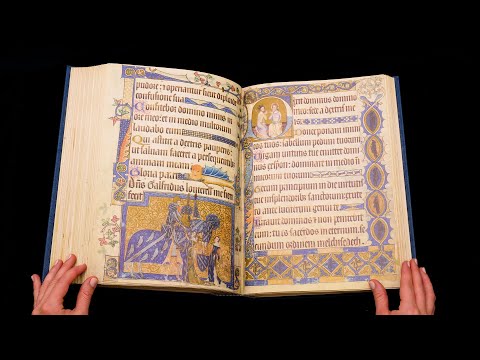 pudore: et operiantur sicut diploide
confusione sua
Confitebor domino nimis in
ore meo: et in medio multorum
laudabo eum
Qui astitit a dextris pauperis
ut salvam faceret a persequentibus
animam meam
Gloria patri
Dns Galfridus louterell me fieri
fecit
Dixit dominus domino
meo: sede a dextris meis
Donec ponam inimicos
tuos: scabellum pedum tuorum
Virgam virtutis tue emittet dominus
ex syon: dominare in medio inimicorum
Tecum principium in die virtutis
tue in splendoribus sanctorum ex utero
ante luciferum genui te
Iuravit dominus et non penitebit
eum: tu es sacerdos in eternum
secundum ordinem melchisedech